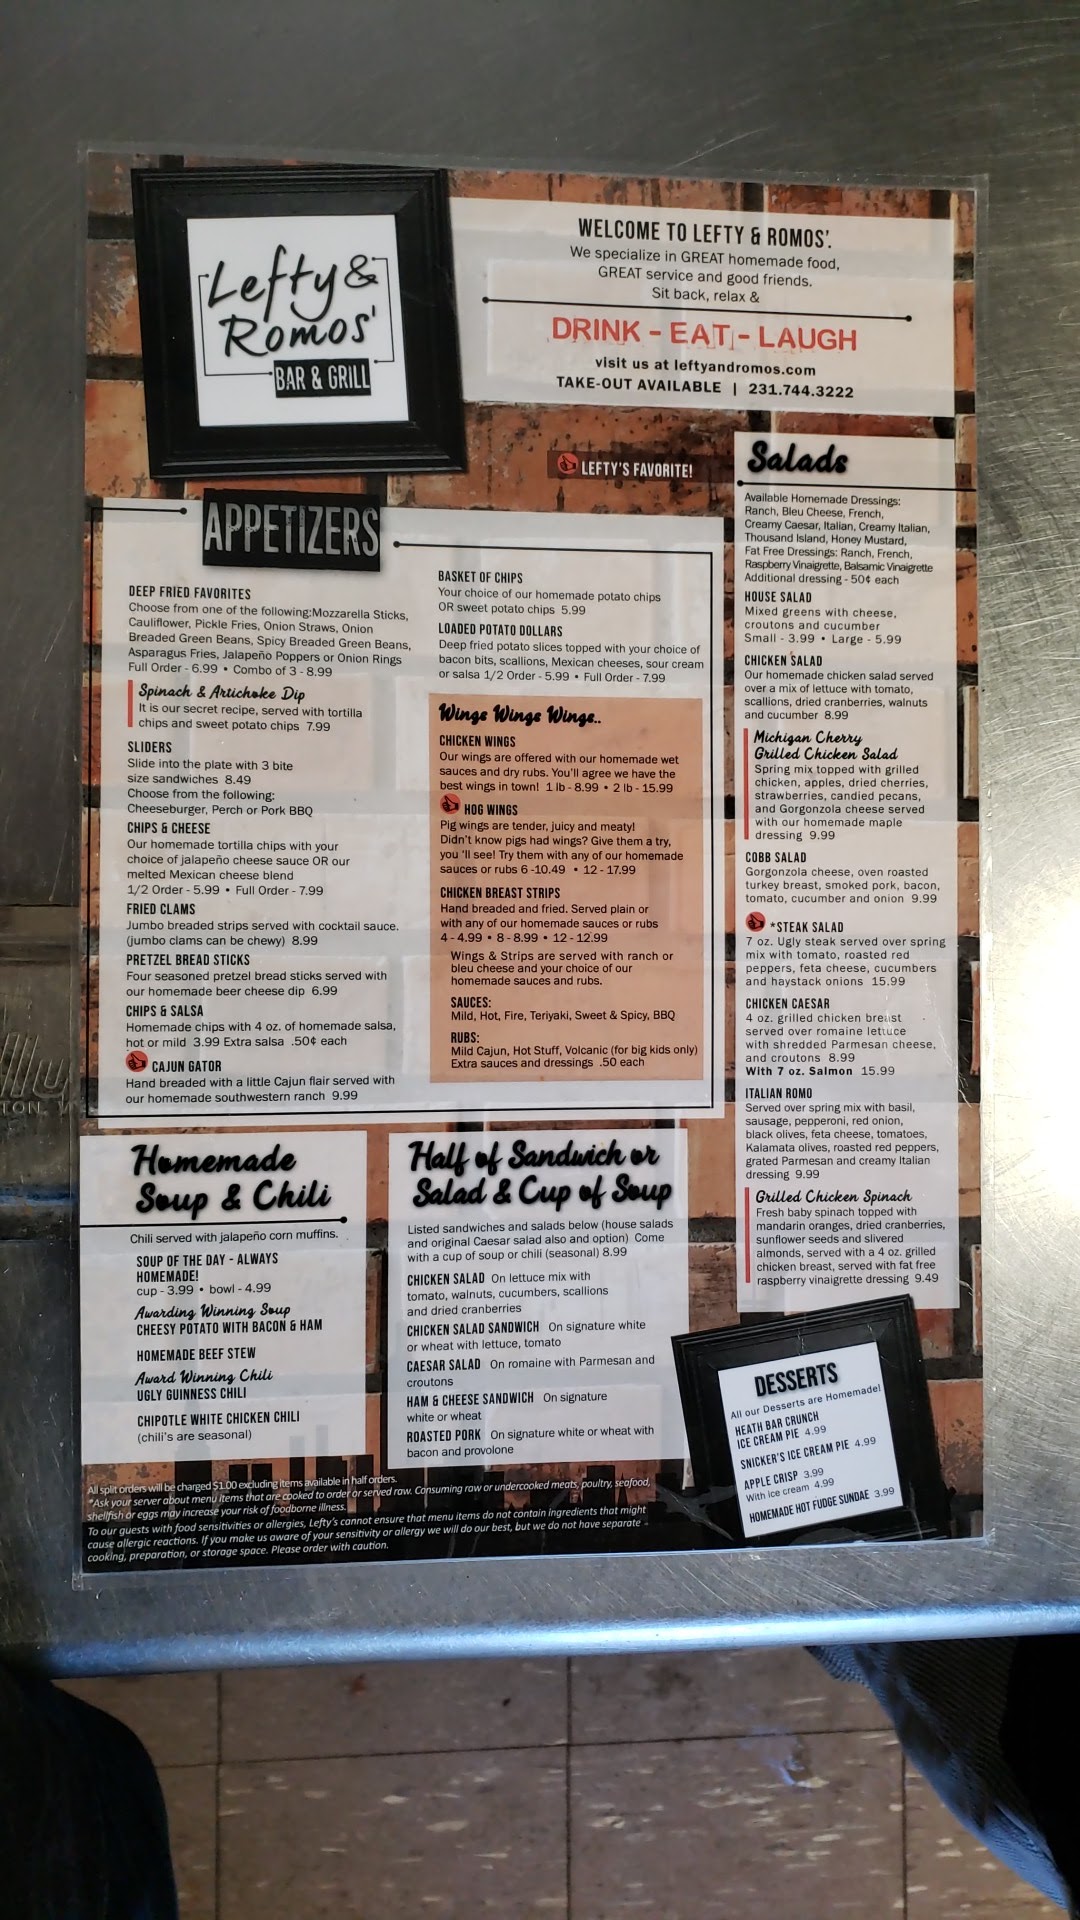 Lefty &
Romos'
BAR & GRILL
WELCOME TO LEFTY & ROMOS'.
We specialize in GREAT homemade food,
GREAT service and good friends.
Sit back, relax &
DRINK - EAT - LAUGH
visit us at leftyandromos.com
TAKE-OUT AVAILABLE | 231.744.3222
LEFTY'S FAVORITE!
APPETIZERS
DEEP FRIED FAVORITES
Choose from one of the following:Mozzarella Sticks,
Cauliflower, Pickle Fries, Onion Straws, Onion
Breaded Green Beans, Spicy Breaded Green Beans,
Asparagus Fries, Jalapeño Poppers or Onion Rings
Full Order - 6.99 • Combo of 3 - 8.99
Spinach & Artichoke Dip
It is our secret recipe, served with tortilla
chips and sweet potato chips 7.99
SLIDERS
Slide into the plate with 3 bite
size sandwiches 8.49
Choose from the following;
Cheeseburger, Perch or Pork BBQ
CHIPS & CHEESE
Our homemade tortilla chips with your
choice of jalapeño cheese sauce OR our
melted Mexican cheese blend
1/2 Order - 5.99 • Full Order - 7.99
FRIED CLAMS
Jumbo breaded strips served with cocktail sauce.
(jumbo clams can be chewy) 8.99
PRETZEL BREAD STICKS
Four seasoned pretzel bread sticks served with
our homemade beer cheese dip 6.99
CHIPS & SALSA
Homemade chips with 4 oz. of homemade salsa,
hot or mild 3.99 Extra salsa .50¢ each
CAJUN GATOR
Hand breaded with a little Cajun flair served with
our homemade southwestern ranch 9.99
BASKET OF CHIPS
Your choice of our homemade potato chips
OR sweet potato chips 5.99
LOADED POTATO DOLLARS
Deep fried potato slices topped with your choice of
bacon bits, scallions, Mexican cheeses, sour cream
or salsa 1/2 Order - 5.99 • Full Order - 7.99
Wings Wings Wings..
CHICKEN WINGS
Our wings are offered with our homemade wet
sauces and dry rubs. You'll agree we have the
best wings in town! 1 lb - 8.99 • 2 lb - 15.99
HOG WINGS
Pig wings are tender, juicy and meaty!
Didn't know pigs had wings? Give them a try,
you 'll see! Try them with any of our homemade
sauces or rubs 6 -10.49 • 12 - 17.99
CHICKEN BREAST STRIPS
Hand breaded and fried. Served plain or
with any of our homemade sauces or rubs
4 - 4.99 • 8 - 8.99 • 12 - 12.99
Wings & Strips are served with ranch or
bleu cheese and your choice of our
homemade sauces and rubs.
SAUCES:
Mild, Hot, Fire, Teriyaki, Sweet & Spicy, BBQ
RUBS:
Mild Cajun, Hot Stuff, Volcanic (for big kids only)
Extra sauces and dressings .50 each
Salads
Available Homemade Dressings:
Ranch, Bleu Cheese, French,
Creamy Caesar, Italian, Creamy Italian,
Thousand Island, Honey Mustard,
Fat Free Dressings: Ranch, French,
Raspberry Vinaigrette, Balsamic Vinaigrette
Additional dressing - 50¢ each
HOUSE SALAD
Mixed greens with cheese,
croutons and cucumber
Small - 3.99 • Large - 5.99
CHICKEN SALAD
Our homemade chicken salad served
over a mix of lettuce with tomato,
scallions, dried cranberries, walnuts
and cucumber 8.99
Michigan Cherry
Grilled Chicken Salad
Spring mix topped with grilled
chicken, apples, dried cherries,
strawberries, candied pecans,
and Gorgonzola cheese served
with our homemade maple
dressing 9.99
COBB SALAD
Gorgonzola cheese, oven roasted
turkey breast, smoked pork, bacon,
tomato, cucumber and onion 9.99
*STEAK SALAD
7 oz. Ugly steak served over spring
mix with tomato, roasted red
peppers, feta cheese, cucumbers
and haystack onions 15.99
CHICKEN CAESAR
4 oz. grilled chicken breast
served over romaine lettuce
with shredded Parmesan cheese,
and croutons 8.99
With 7 oz. Salmon 15.99
ITALIAN ROMO
Served over spring mix with basil,
sausage, pepperoni, red onion,
black olives, feta cheese, tomatoes,
Kalamata olives, roasted red peppers,
grated Parmesan and creamy Italian
dressing 9.99
Grilled Chicken Spinach
Fresh baby spinach topped with
mandarin oranges, dried cranberries,
sunflower seeds and slivered
almonds, served with a 4 oz. grilled
chicken breast, served with fat free
raspberry vinaigrette dressing 9.49
Homemade
Soup & Chili
Chili served with jalapeño corn muffins.
SOUP OF THE DAY - ALWAYS
HOMEMADE!
cup - 3.99 • bowl - 4.99
Awarding Winning Soup
CHEESY POTATO WITH BACON & HAM
HOMEMADE BEEF STEW
Award Winning Chili
UGLY GUINNESS CHILI
CHIPOTLE WHITE CHICKEN CHILI
(chili's are seasonal)
Half of Sandwich or
Salad & Cup of Soup
Listed sandwiches and salads below (house salads
and original Caesar salad also and option) Come
with a cup of soup or chili (seasonal) 8.99
CHICKEN SALAD On lettuce mix with
tomato, walnuts, cucumbers, scallions
and dried cranberries
CHICKEN SALAD SANDWICH On signature white
or wheat with lettuce, tomato
CAESAR SALAD On romaine with Parmesan and
croutons
HAM & CHEESE SANDWICH On signature
white or wheat
ROASTED PORK On signature white or wheat with
bacon and provolone
DESSERTS
All our Desserts are Homemade!
HEATH BAR CRUNCH
ICE CREAM PIE 4.99
SNICKER'S ICE CREAM PIE 4.99
APPLE CRISP 3.99
With ice cream 4.99
HOMEMADE HOT FUDGE SUNDAE 3.99
All split orders will be charged $1.00 excluding items available in half orders.
*Ask your server about menu items that are cooked to order or served raw. Consuming raw or undercooked meats, poultry, seafood,
shellfish or eggs may increase your risk of foodborne illness.
To our guests with food sensitivities or allergies, Lefty's cannot ensure that menu items do not contain ingredients that might
cause allergic reactions. If you make us aware of your sensitivity or allergy we will do our best, but we do not have separate
cooking, preparation, or storage space. Please order with caution.